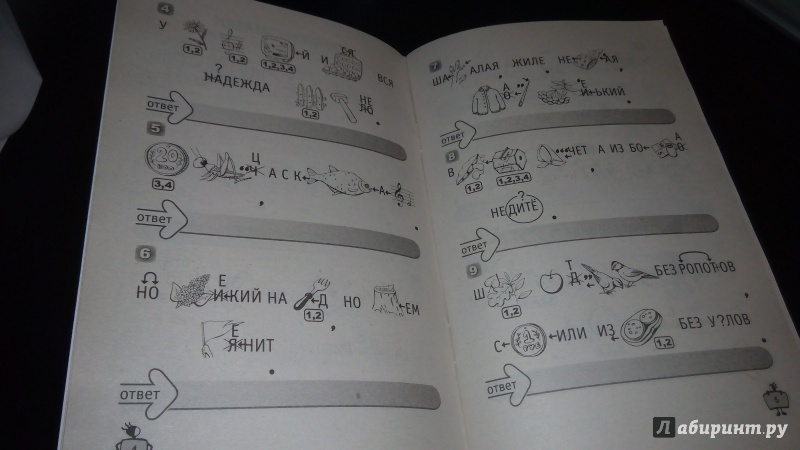 4
У
1,2
1,2
1,2,3,4
Й И
СЯ
ВСЯ
?
НАДЕЖДА
1,2
НЕ
ЛО
ответ
5
20
3,4
Ц
Ч
А С К
А
.
ответ
6
НО
Е
ИЖКИЙ НА
Д НО
ЕМ
1,2
,
Е
ЯНИТ
.
ответ
4
7
ША
АЛАЯ ЖИЛЕ НЕ
АЯ
,
А
О
Е
ЙЬКИЙ
.
ответ
8
В
1,2
1,2,3,4
ЧЕТ А ИЗ БО
А
О
,
?
НЕДИТЁ
.
ответ
9
Ш
1,2
Т
Д
БЕЗ РОПОТОВ
,
С
1
ИЛИ ИЗ
1,2
БЕЗ У?ЛОВ
.
ответ
5
Лабиринт.ру